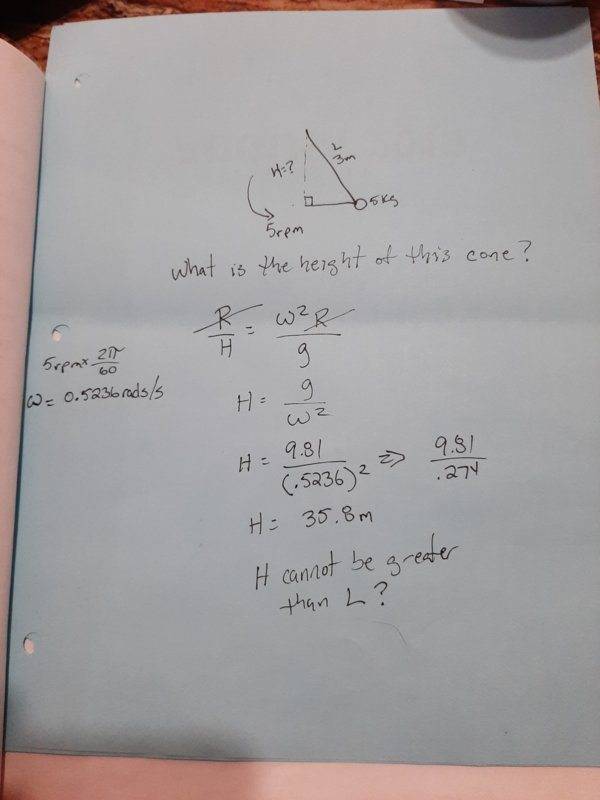 H=?
L
3m
5kg
5rpm
What is the height of this cone?
R/H = ω²R/g
5rpm × 2π/60
ω = 0.5236rads/s
H = g/ω²
H = 9.81/(.5236)² => 9.81/.274
H = 35.8m
H cannot be greater
than L?